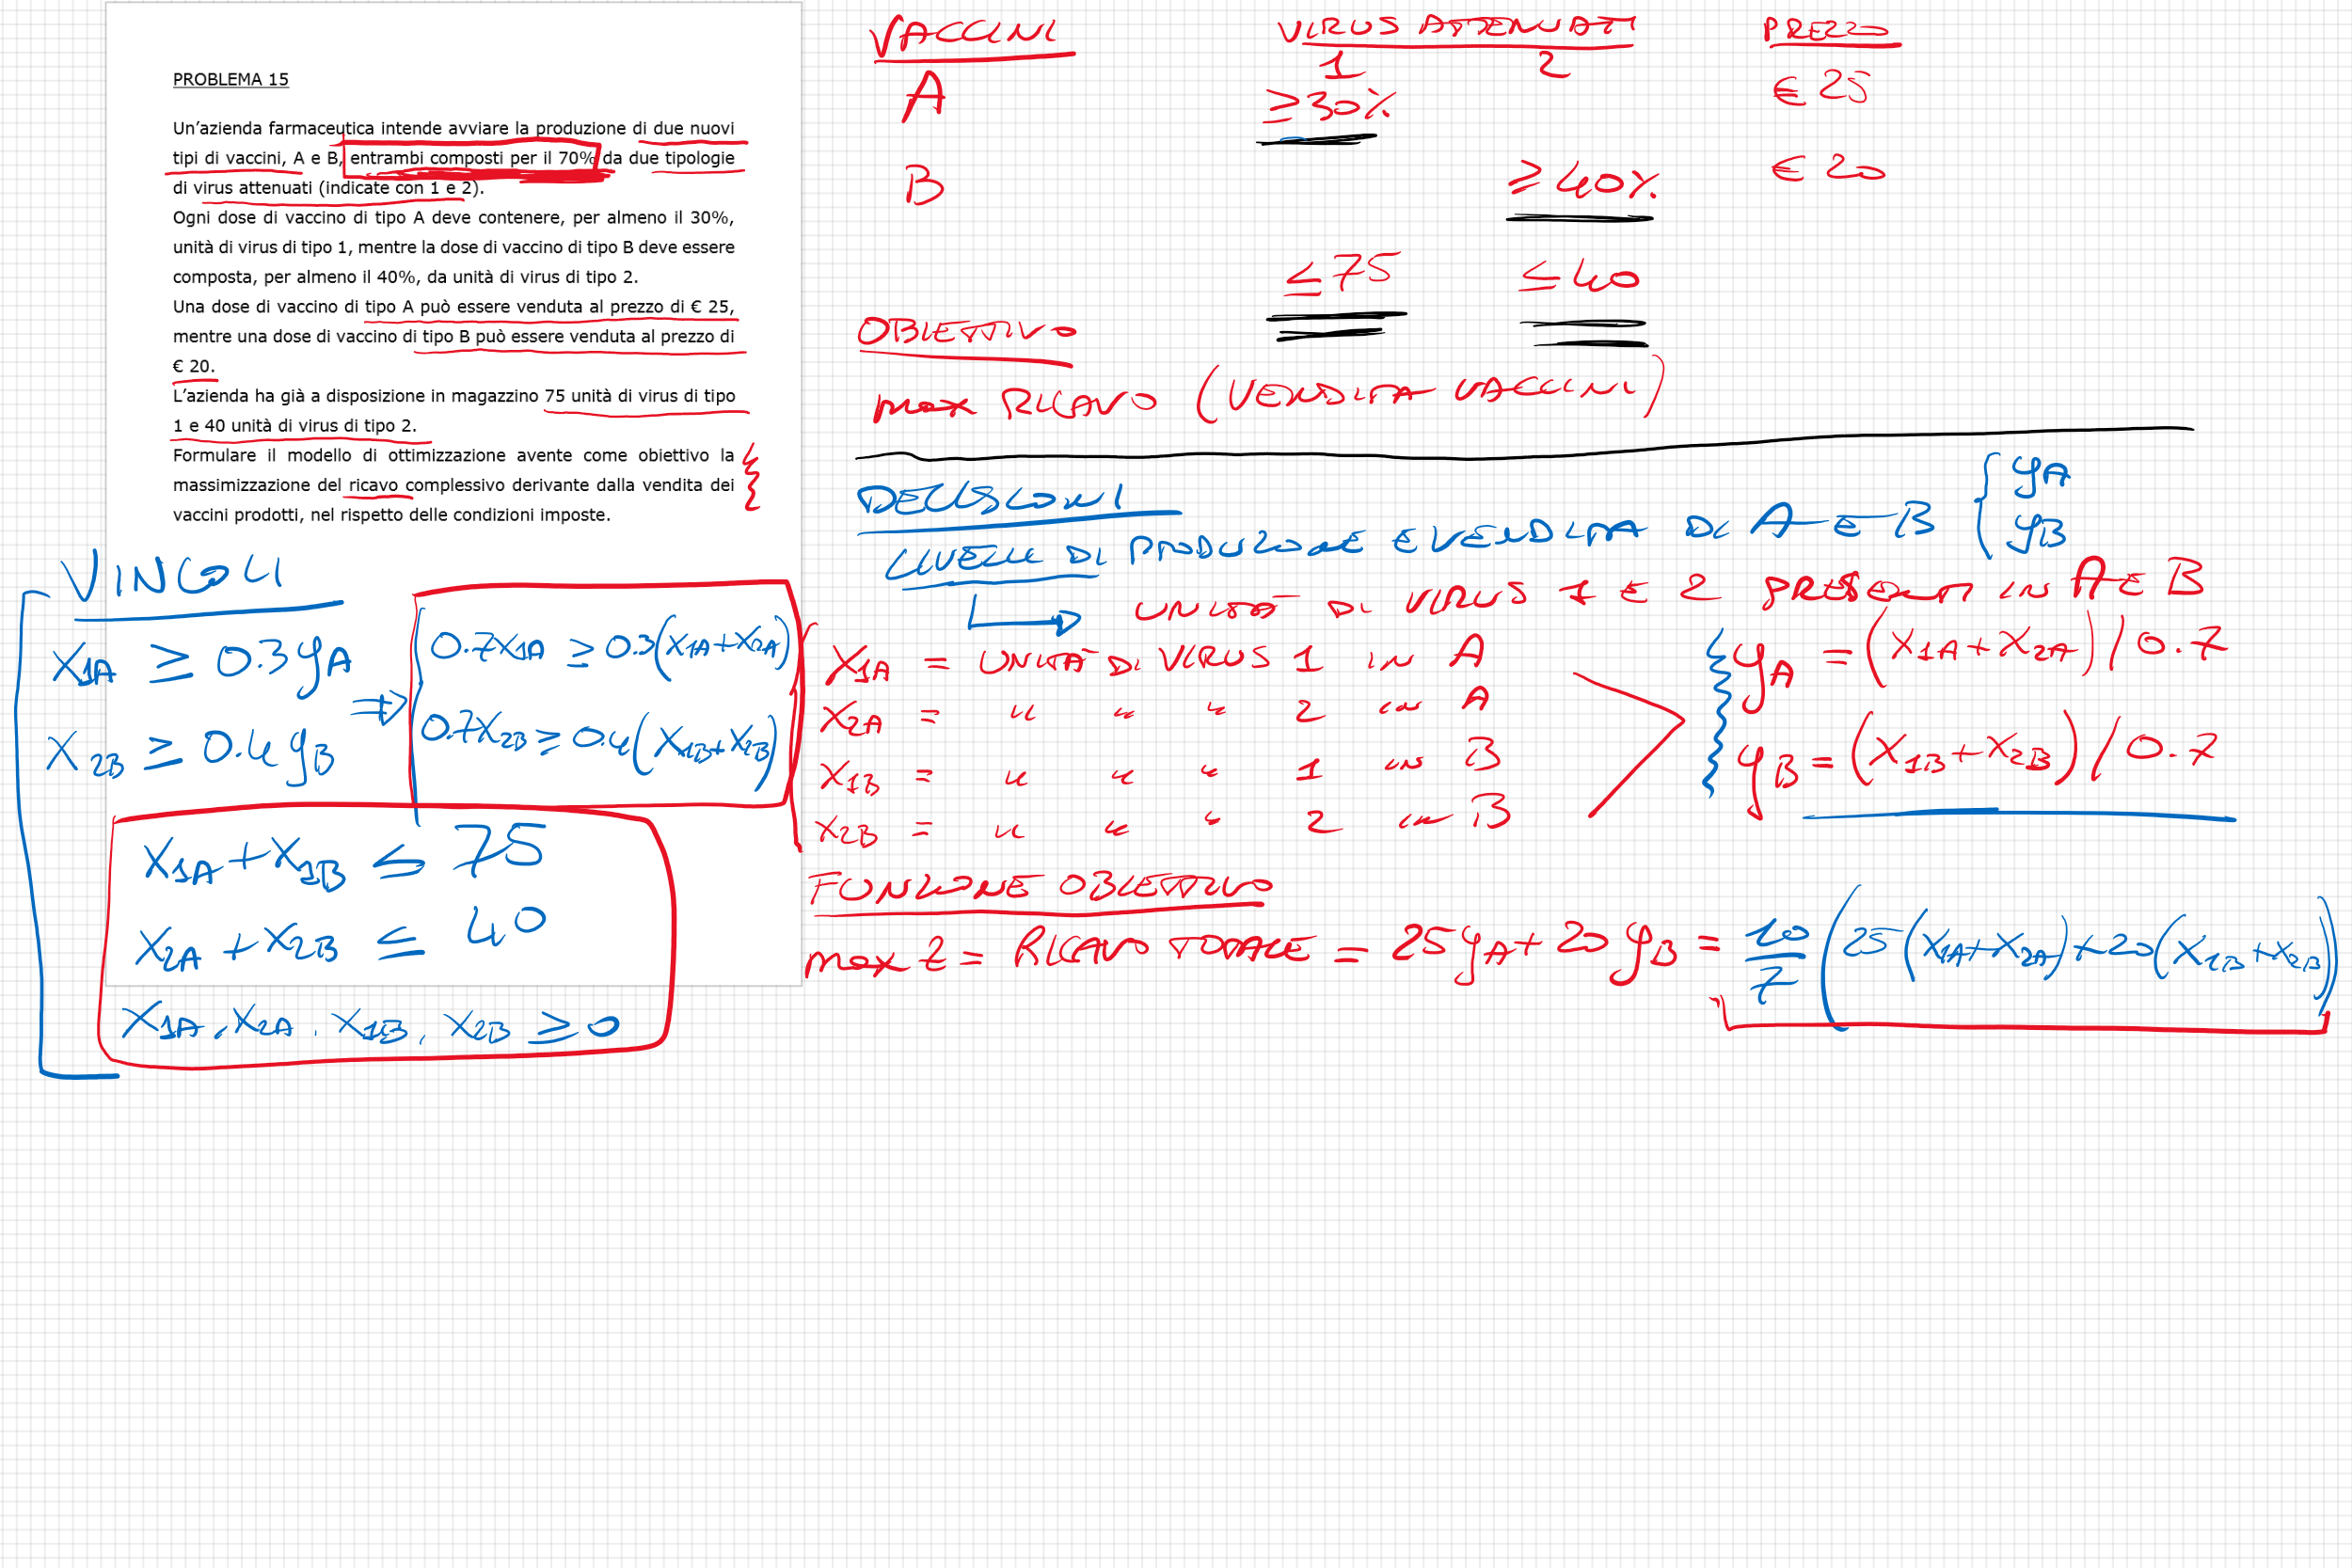 PROBLEMA 15
Un’azienda farmaceutica intende avviare la produzione di due nuovi
tipi di vaccini, A e B, entrambi composti per il 70% da due tipologie
di virus attenuati (indicate con 1 e 2).
Ogni dose di vaccino di tipo A deve contenere, per almeno il 30%,
unità di virus di tipo 1, mentre la dose di vaccino di tipo B deve essere
composta, per almeno il 40%, da unità di virus di tipo 2.
Una dose di vaccino di tipo A può essere venduta al prezzo di € 25,
mentre una dose di vaccino di tipo B può essere venduta al prezzo di
€ 20.
L’azienda ha già a disposizione in magazzino 75 unità di virus di tipo
1 e 40 unità di virus di tipo 2.
Formulare il modello di ottimizzazione avente come obiettivo la
massimizzazione del ricavo complessivo derivante dalla vendita dei
vaccini prodotti, nel rispetto delle condizioni imposte.
VACCINI VIRUS ATTENUATI PREZZO
1 2
A ≥30% € 25
B ≥40% € 20
≤75 ≤40
OBIETTIVO
max RICAVO (VENDITA VACCINI)
DECISIONI
LIVELLI DI PRODUZIONE E VENDITA DI A E B { yA
yB
UNITÀ DI VIRUS 1 E 2 PRESENTI IN A E B
X1A = UNITÀ DI VIRUS 1 IN A
X2A = " " " 2 in A
X1B = " " " 1 in B
X2B = " " " 2 in B
yA = (X1A+X2A)/0.7
yB = (X1B+X2B)/0.7
FUNZIONE OBIETTIVO
max z = RICAVO TOTALE = 25yA+20yB = 10/7 (25(X1A+X2A)+20(X1B+X2B))
VINCOLI
X1A ≥ 0.3yA
X2B ≥ 0.4yB
⇒ 0.7X1A ≥ 0.3(X1A+X2A)
0.7X2B ≥ 0.4(X1B+X2B)
X1A+X1B ≤ 75
X2A+X2B ≤ 40
X1A, X2A, X1B, X2B ≥ 0